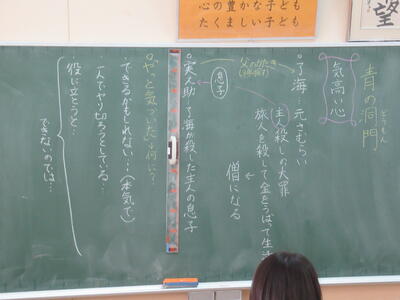 心の豊かな子ども
たくましい子ども
望
青の洞門
どうもん
気高い心
○了海…元さむらい
主人殺しの大罪
旅人を殺して金をうばって生活
僧になる
父のかたき
息子
○実之助…了海が殺した主人の息子
○やっと気づいた→何に?
・できるかもしれない…(本気で)
・一人でやり切ろうとしている…
役に立とうと…
できないのでは…